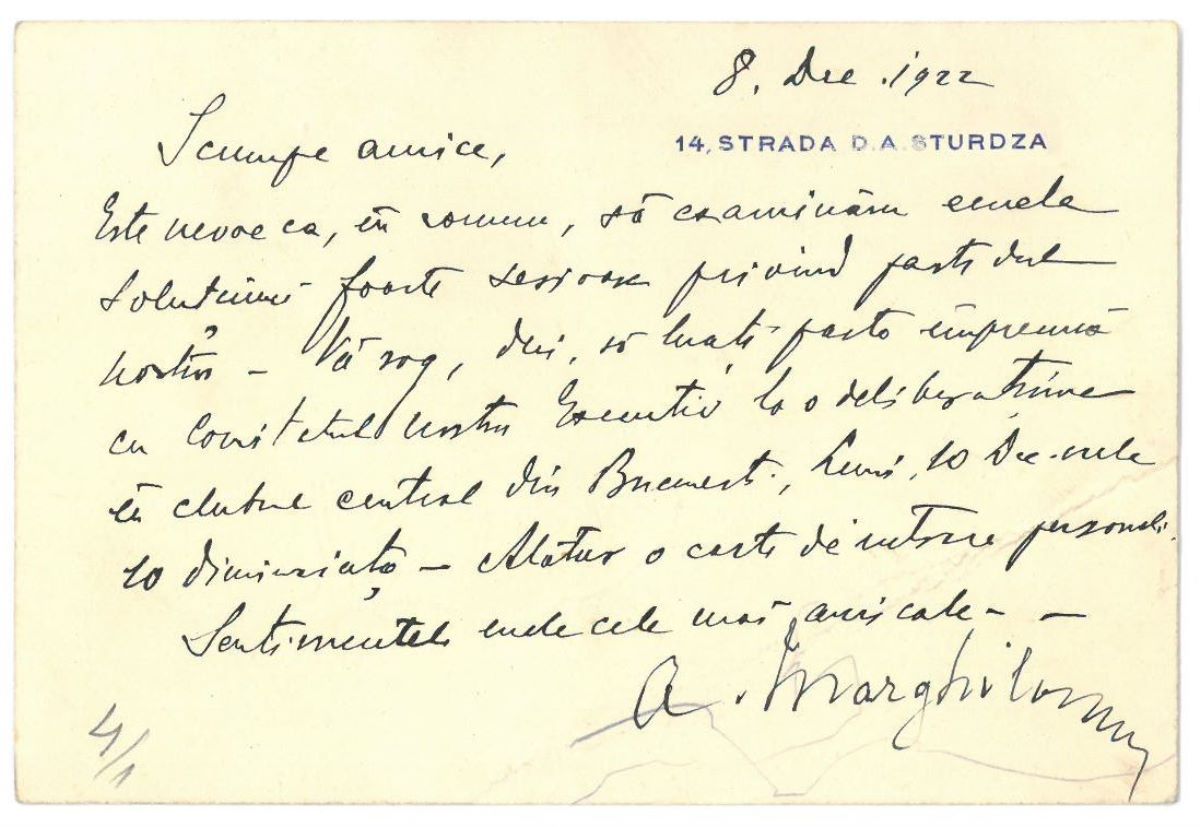 8. Dec. 1922
14, STRADA D.A. STURDZA
Scumpe amice,
Este nevoe ca, în comun, să examinăm unele
soluțiuni foarte serioase privind partidul
nostru – Vă rog, deci, să luați parte împreună
cu Comitetul nostru Executiv la o deliberațiune
în clubul central din București, Luni, 10 Dec. orele
10 dimineața – Alătur o carte de intrare personală.
Sentimentele mele cele mai amicale – –
A. Marghiloman
4/1